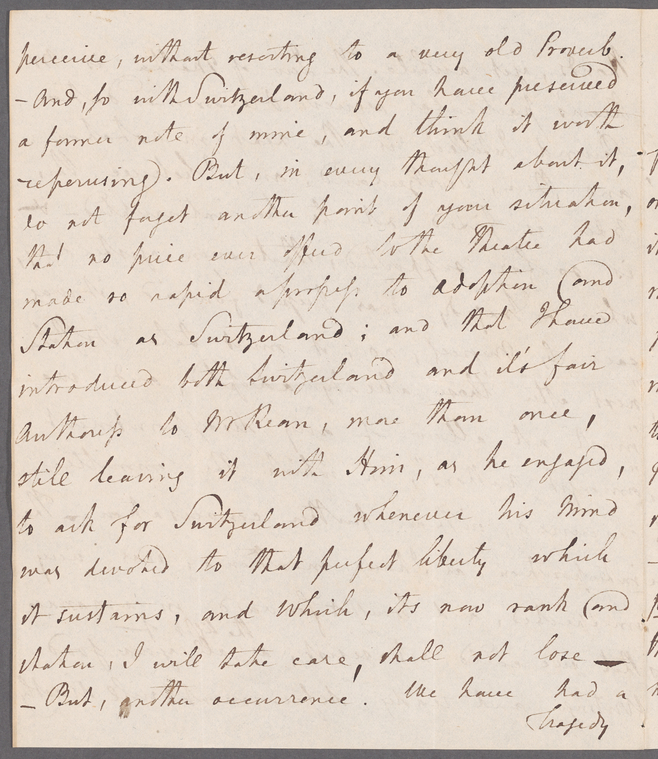 perceive, without resorting to a very old Proverb.
– And, so with Switzerland, if you have preserved
a former note of mine, and think it worth
reperusing). But, in every thought about it,
do not forget another point of your situation,
that no piece ever offer'd to the Theatre had
made so rapid a progress to adoption (and
Station as Switzerland; and that I have
introduced both Switzerland and it's fair
Authoress to Mr Kean, more than once,
still leaving it with Him, as he engaged,
to ask for Switzerland whenever his Mind
was devoted to that perfect liberty which
it sustains, and which, its now rank (and
station, I will take care, shall not lose —
– But, another occurrence. We have had a
Tragedy